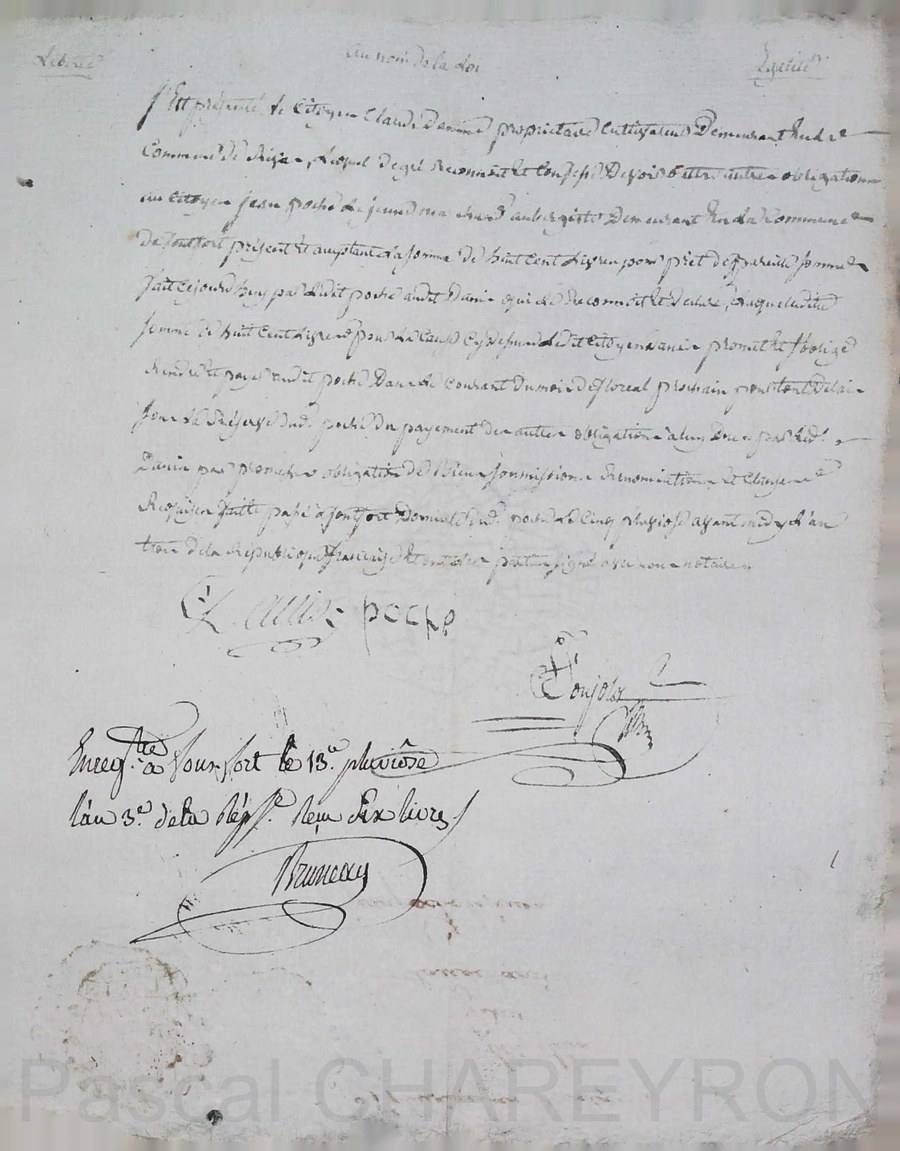 Liberté au nom de la Loi Egalité
S'Est présenté le Citoyen Claude Danin proprietaire Cultivateur Demeurant En la
Commune de Lequel de gré Reconnoit Et Confesse Devoir outre autres obligations
au Citoyen Jean poche Le jeune aubergiste Demeurant En la Commune
De fontfort présent Et acceptant La somme De huit Cent Livres pour prêt de pareille somme
fait Cejourdhuy par Ledit poche audit Danin qui Le Reconnoit Et Declare, Laquelleditte
somme De huit Cent Livres pour La Cause Cy dessus Ledit Citoyen Danin promet Et s'oblige
Rendre Et payer audit poche Dans Le Courant du mois de floreal prochain pour tout Delai
sous La Réserve dud. poche du payement des autres obligations à luy Dues par Led.
Danin par promesse obligation de Biens soumissions Renonciations Et Clauses
Requises faitte passé à fontfort Domicile dud. poche Le Cinq pluviose avant midy L'an
trois de la République française Et ont Les parties signé avec nous notaire
poche
Ponjolas
Enregtré à Fontfort le 13.e pluviôse
l'an 3.e de la Rép. Reçu Six livres
Bruneau
Pascal CHAREYRON